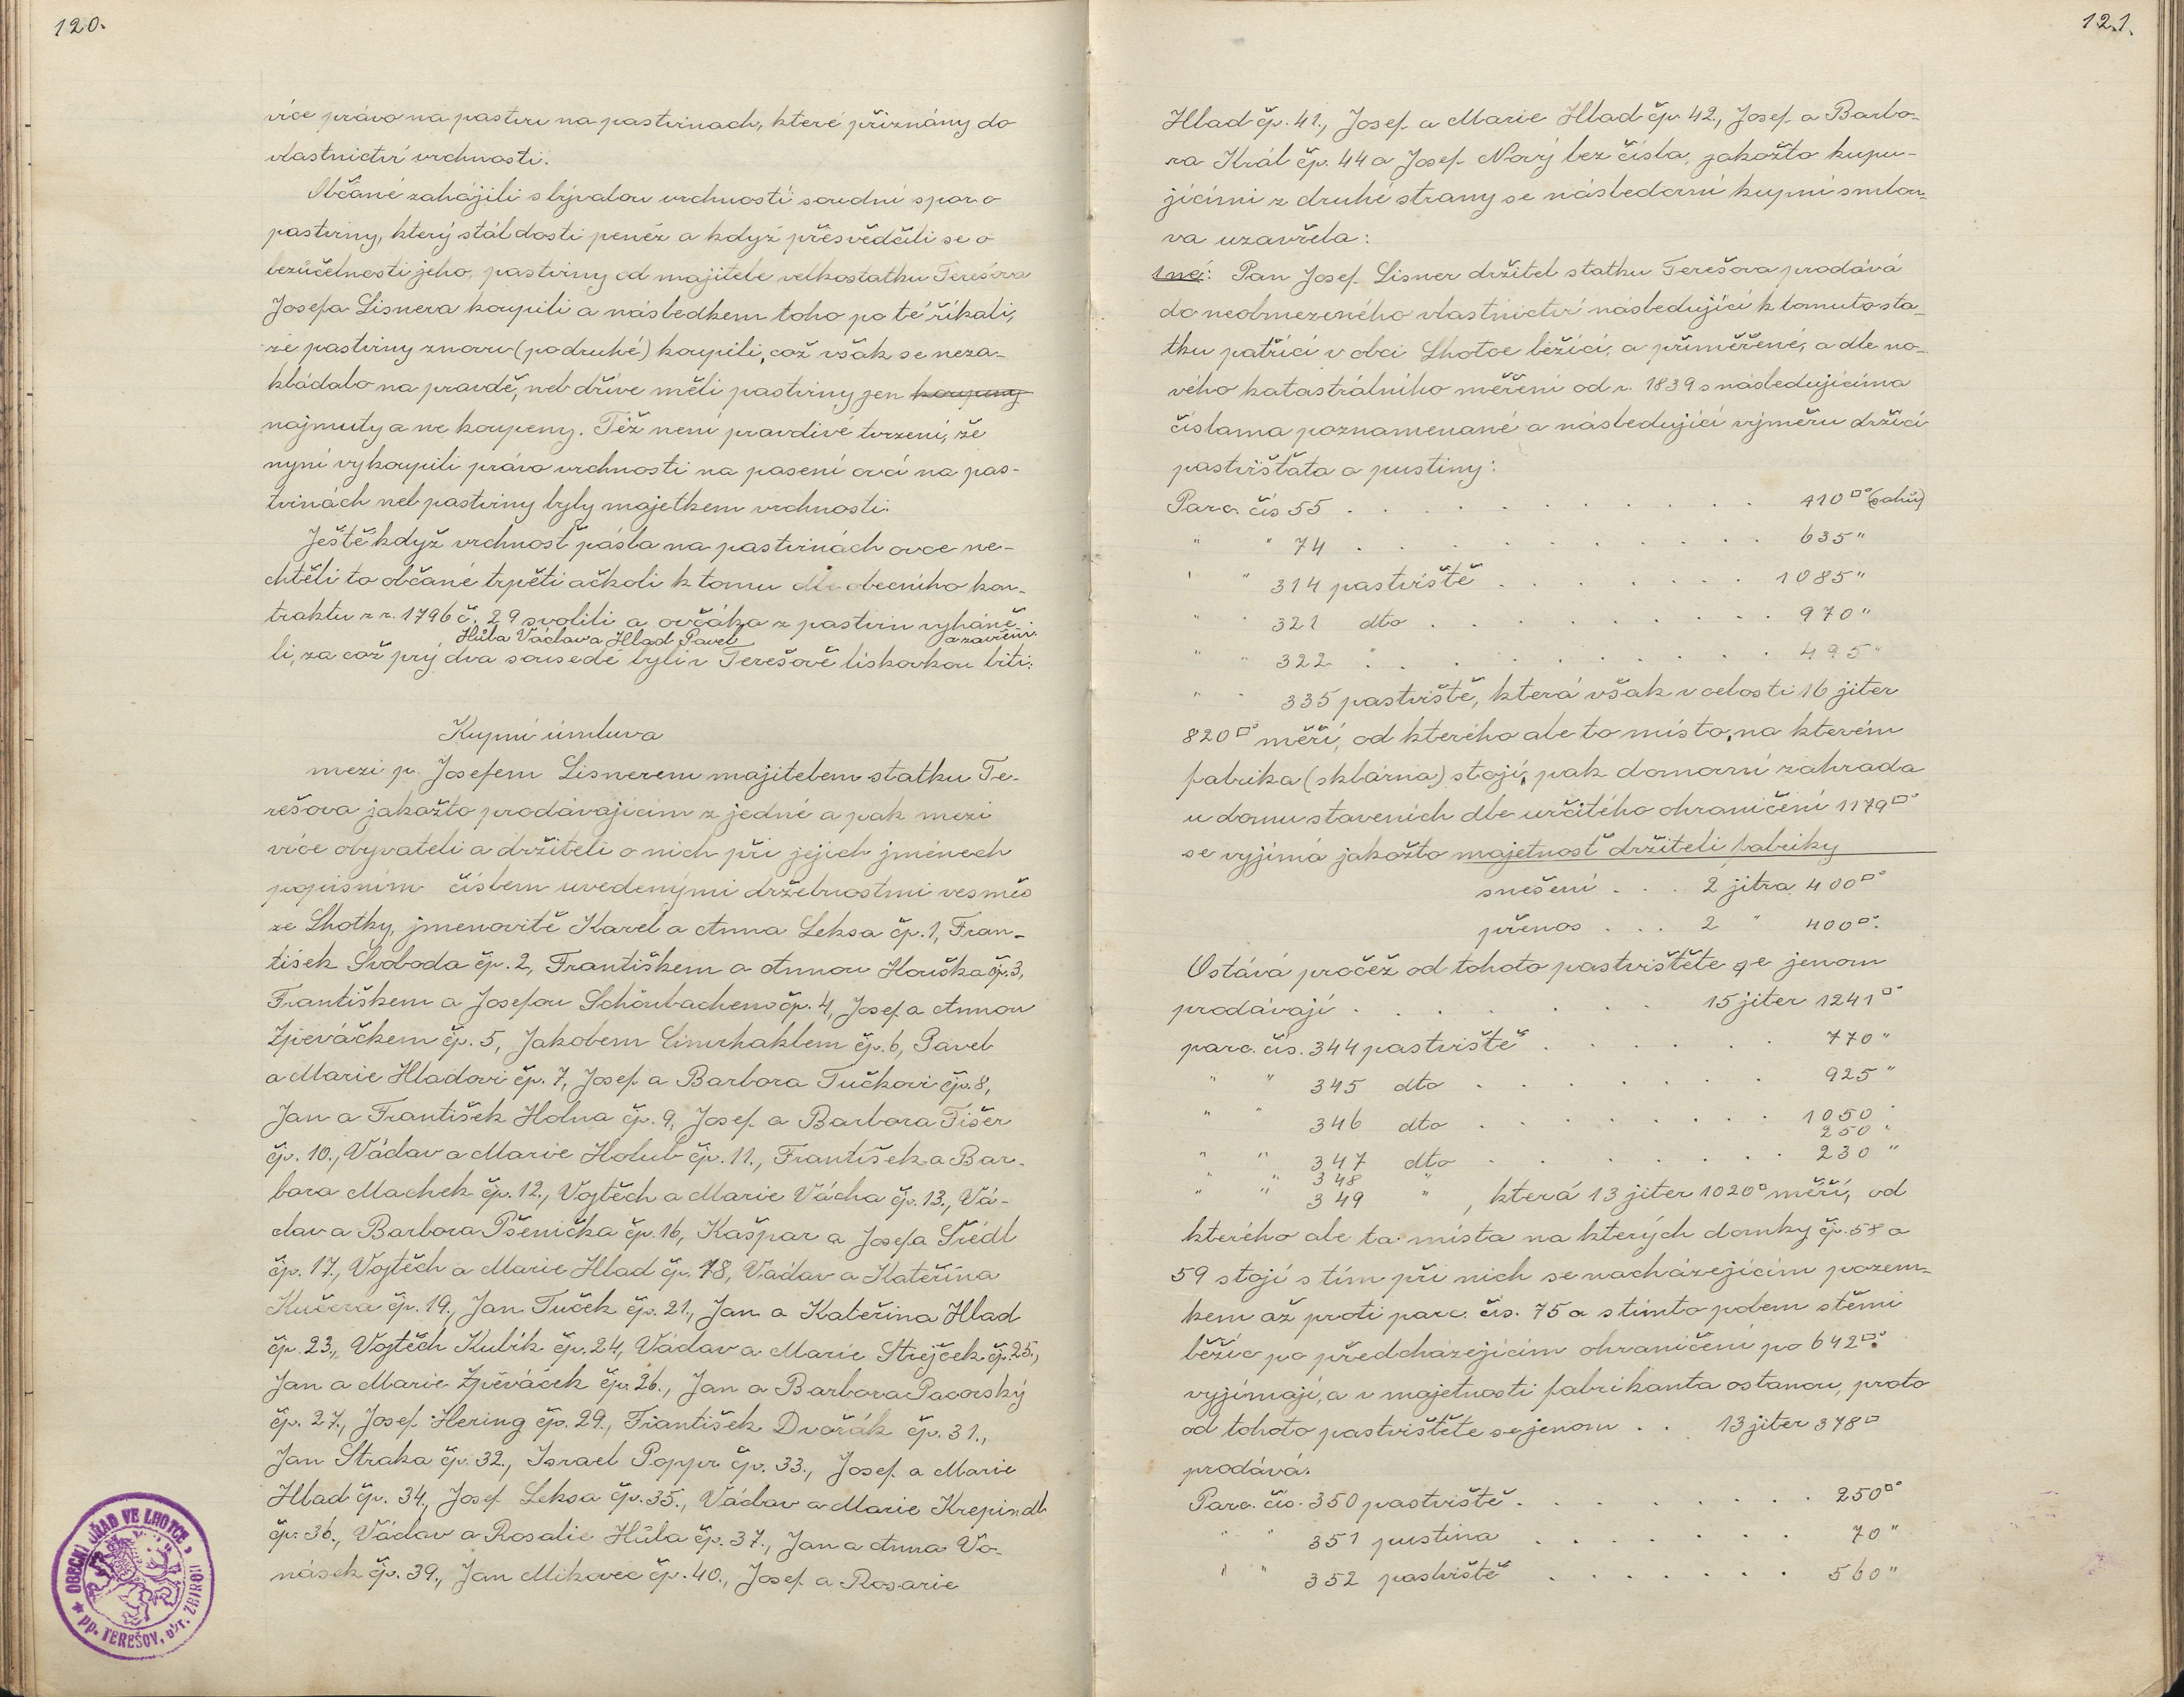 120.
více právo na pastvu na pastvinach, které přiznány do
vlastnictví vrchnosti.
Občané zahájili s bývalou vrchností soudní spor o
pastviny, který stál dosti peněz a když přesvědčili se o
bezúčelnosti jeho, pastviny od majitele velkostatku Terešova
Josefa Lisnera koupili a následkem toho po té říkali,
že pastviny znovu (podruhé) koupili, což však se neza-
kládalo na pravdě, neb dříve měli pastviny jen koupeny
najmuty a ne koupeny. Též není pravdivé tvrzení, že
nyní vykoupili právo vrchnosti na pasení ovcí na pas-
tvinách neb pastviny byly majetkem vrchnosti.
Ještě když vrchnost pásla na pastvinách ovce ne-
chtěli to občané trpěti ačkoli k tomu dle obecního kon-
traktu z r. 1796 č. 29 svolili a ovčáka z pastvin vyháně-
Hůla Václav a Hlad Pavel a zavřeni.
li, za což prý dva sousedé byli v Terešově lískovkou biti.
Kupní úmluva
mezi p. Josefem Lisnerem majitelem statku Te-
rešova jakožto prodávajícím z jedné a pak mezi
více obyvateli a držiteli o nich při jejich jménech
popisním číslem uvedenými držebnostmi vesměs
ze Lhotky, jmenovitě Karel a Anna Leksa čp. 1, Fran-
tišek Svoboda čp. 2, Františkem a Annou Houška čp. 3,
Františkem a Josefou Schönbachem čp. 4, Josef a Annou
Zpěváčkem čp. 5, Jakobem Cimrhaklem čp. 6, Pavel
a Marie Hladovi čp. 7, Josef a Barbora Tučkovi čp. 8,
Jan a František Holna čp. 9, Josef a Barbora Fišer
čp. 10., Václav a Marie Holub čp. 11., František a Bar-
bora Machek čp. 12., Vojtěch a Marie Vácha čp. 13., Vá-
clav a Barbora Pšenička čp. 16, Kašpar a Josefa Šrédl
čp. 17., Vojtěch a Marie Hlad čp. 18, Václav a Kateřina
Kučera čp. 19., Jan Tuček čp. 21., Jan a Kateřina Hlad
čp. 23., Vojtěch Kubík čp. 24, Václav a Marie Strejček čp. 25.,
Jan a Marie Zpěváček čp. 26., Jan a Barbora Pacovský
čp. 27., Josef Hering čp. 29., František Dvořák čp. 31.,
Jan Straka čp. 32., Israel Poppr čp. 33., Josef a Marie
Hlad čp. 34., Josef Leksa čp. 35., Václav a Marie Krepindl
čp. 36., Václav a Rosalie Hůla čp. 37., Jan a Anna Vo-
násek čp. 39., Jan Mikovec čp. 40., Josef a Rosarie
OBECNÍ ÚŘAD VE LHOTCE,
pp. TEREŠOV, okr. ZBIROH
121.
Hlad čp. 41., Josef a Marie Hlad čp. 42., Josef a Barbo-
ra Král čp. 44 a Josef Nový bez čísla, jakožto kupu-
jícími z druhé strany se následovní kupní smlou-
va uzavřela:
1né: Pan Josef Lisner držitel statku Terešova prodává
do neobmezeného vlastnictví následující k tomuto sta-
tku patřící v obci Lhotce ležící, a přiměřené, a dle no-
vého katastrálního měření od r. 1839 s následujícíma
číslama poznamenané a následující výměru držící
pastvišťata a pustiny:
Parc. čís 55 . . . . . . . . . . . 410□° (sahů)
" " 74 . . . . . . . . . . . 635 "
" " 314 pastviště . . . . . . . 1085 "
" " 321 dto . . . . . . . . . 970 "
" " 322 " . . . . . . . . . . 495 "
" " 335 pastviště, která však v celosti 16 jiter
820□° měří, od kterého ale to místo, na kterém
fabrika (sklárna) stojí, pak domovní zahrada
u domu staveních dle určitého ohraničení 1179□°
se vyjímá jakožto majetnost držiteli fabriky
snešení . . . 2 jitra 400□°
přenos . . . 2 " 400□°.
Ostává pročež od tohoto pastvištěte se jenom
prodávají . . . . . . . 15 jiter 1241□°
parc. čís. 344 pastviště . . . . . . 770 "
" " 345 dto . . . . . . . 925 "
" " 346 dto . . . . . . . . 1050 "
250 "
" " 347 dto . . . . . . . . 230 "
" " 348 "
" " 349 " , která 13 jiter 1020□ měří, od
kterého ale ta místa na kterých domky čp. 58 a
59 stojí s tím při nich se nacházejícím pozem-
kem až proti parc. čís. 75 a s tímto polem stěmi
běžíc po předcházejícím ohraničení po 642□°.
vyjímají, a v majetnosti fabrikanta ostanou, proto
od tohoto pastvištěte se jenom . . 13 jiter 378□
prodává.
Parc. čís. 350 pastviště . . . . . . . . 250□°
" " 351 pustina . . . . . . . 70 "
" " 352 pastviště . . . . . . . 560 "